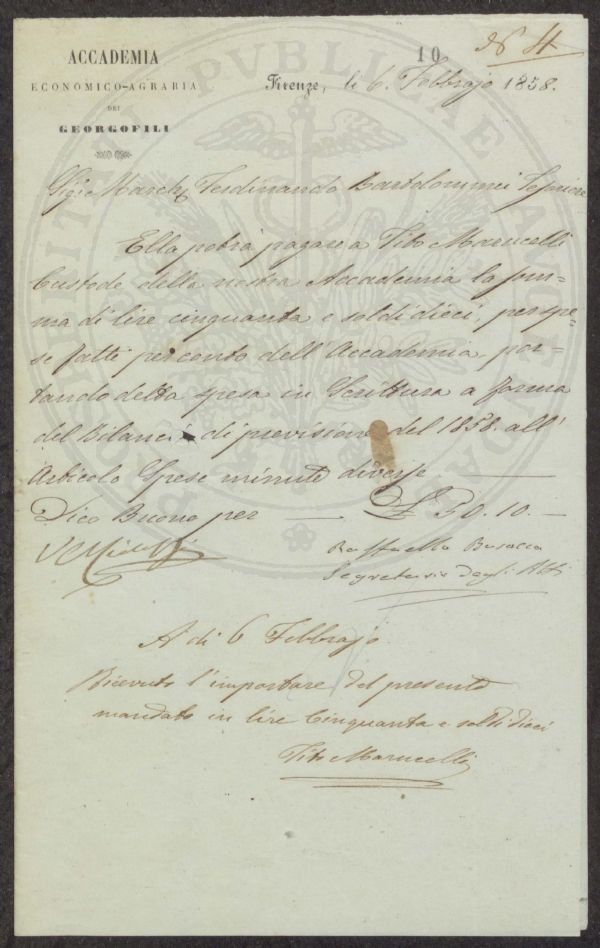 ACCADEMIA
ECONOMICO-AGRARIA
DEI
GEORGOFILI
10
N 4
Firenze, li 6. Febbrajo 1858.
Sigr. March. Ferdinando Bartolommei Tesoriere
Ella potrà pagare a Tito Marucelli
Custode della nostra Accademia la som-
ma di lire cinquanta e soldi dieci, per spe-
se fatte per conto dell'Accademia, por-
tando detta spesa in Scrittura a forma
del Bilancio di previsione del 1858. all'
Articolo Spese minute diverse
Dico Buono per £ 50. 10. —
Raffaello Busacca
Segretario degli Atti
A di 6 Febbrajo
Ricevuto l'importare del presente
mandato in lire Cinquanta e soldi dieci
Tito Marucelli